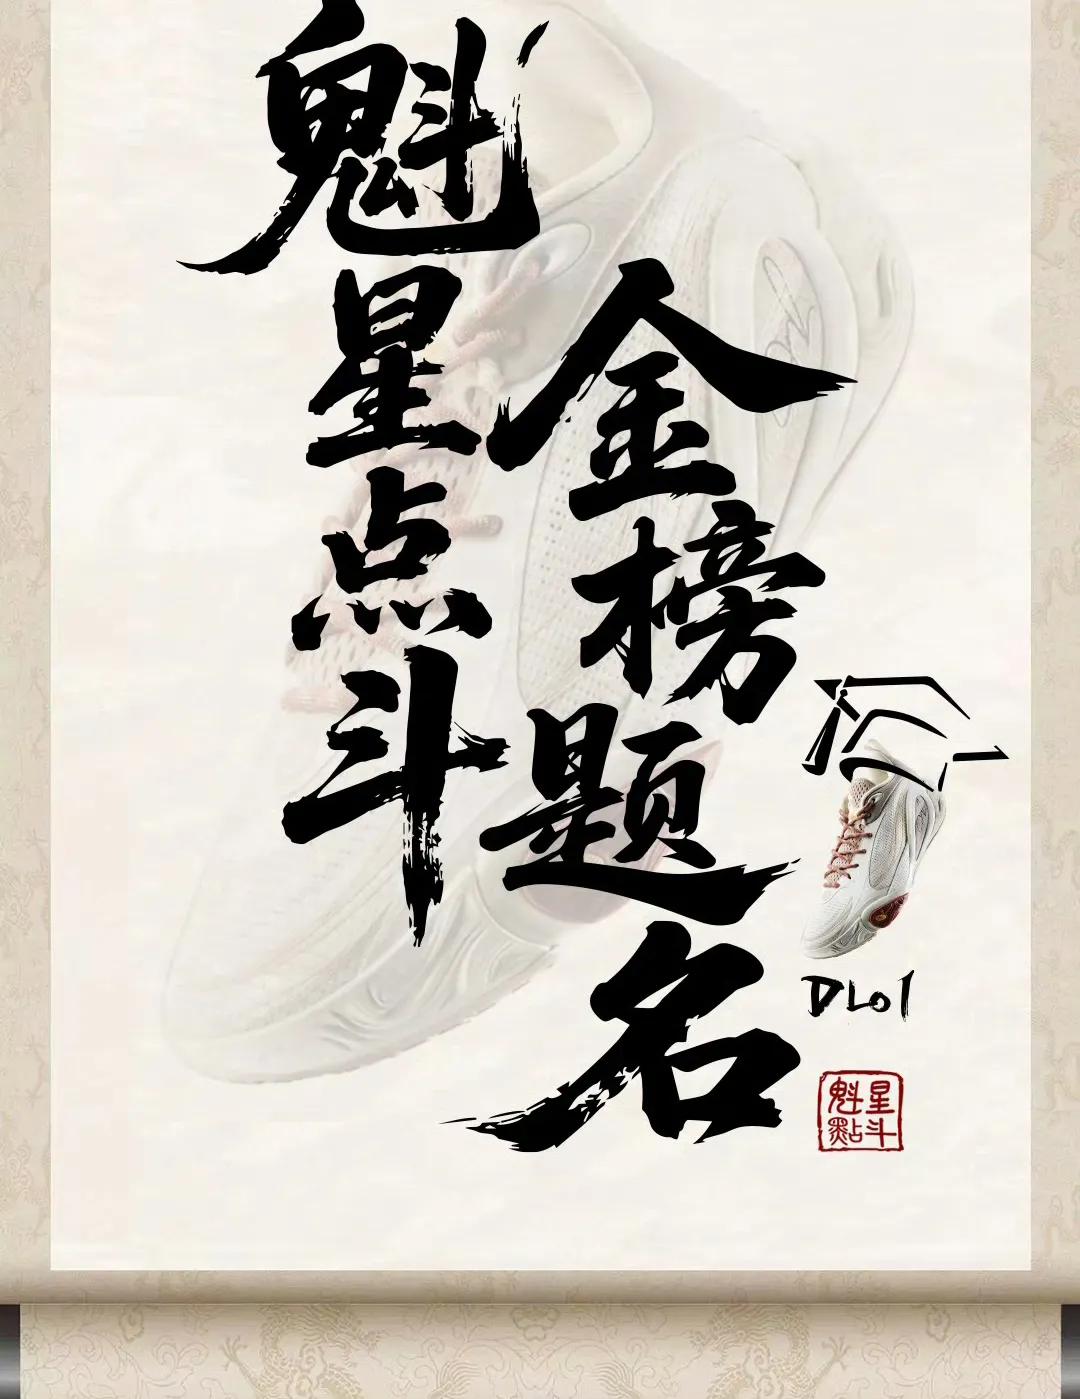 魁星点斗
金榜题名
DLo1
魁星
點斗